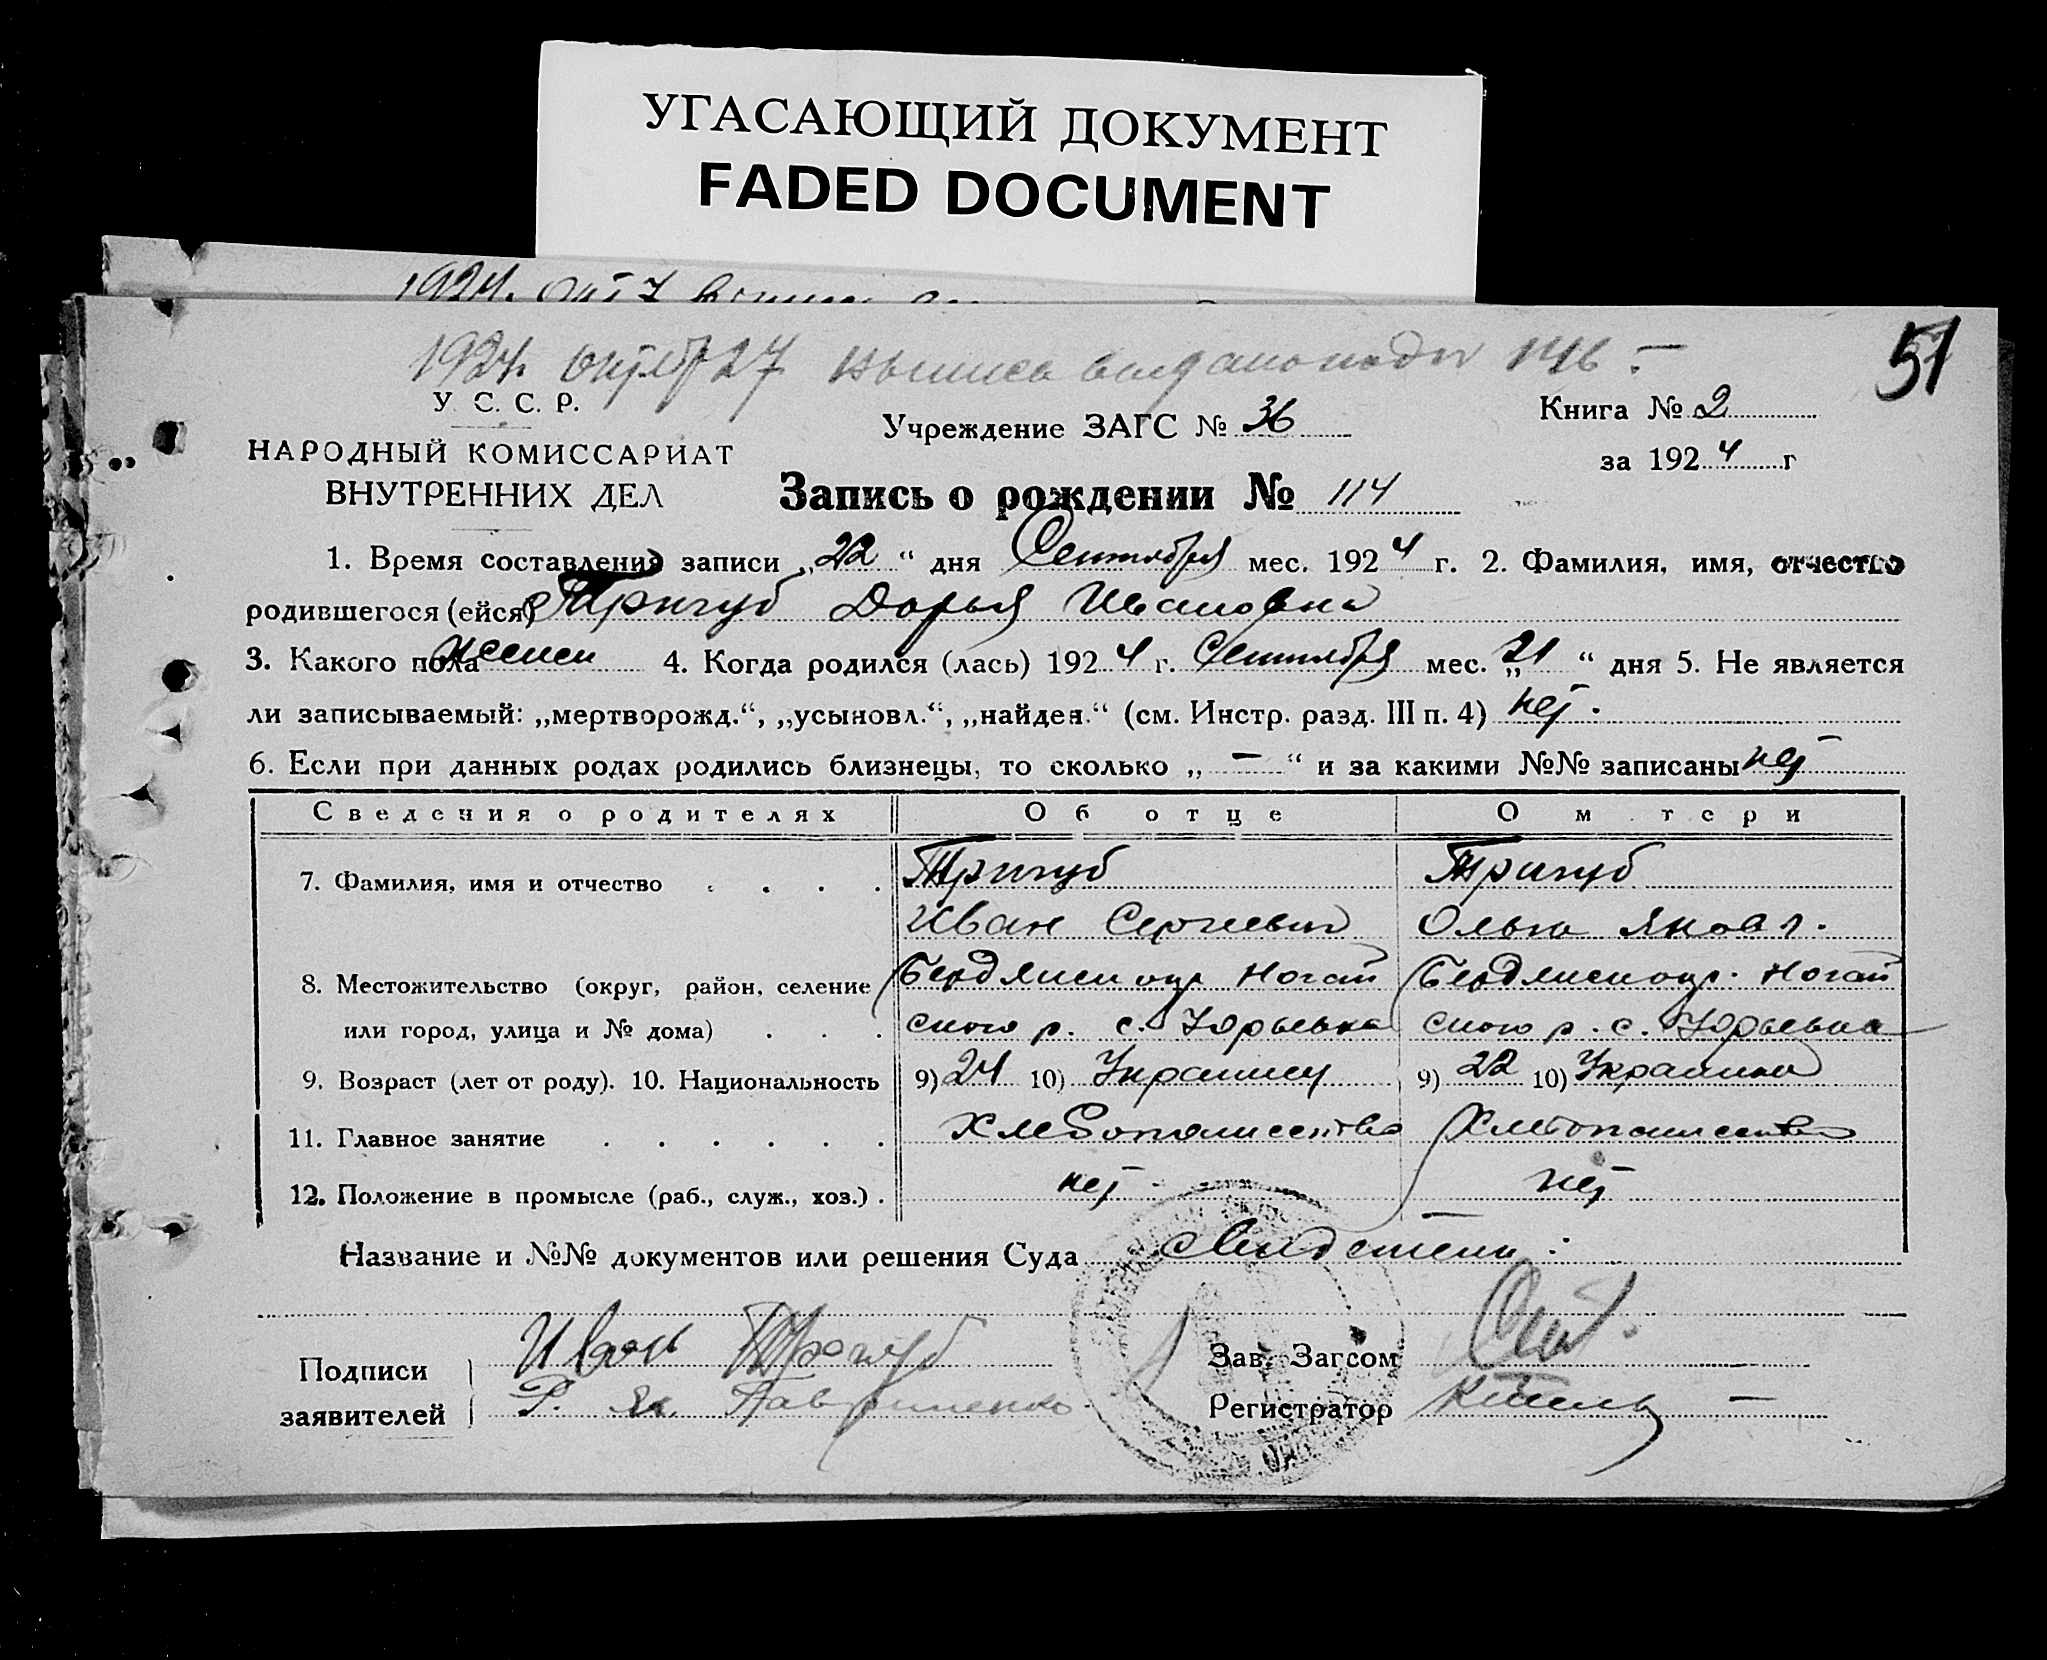 УГАСАЮЩИЙ ДОКУМЕНТ
FADED DOCUMENT
1924. октяб 27 выпись выдано под № 146 -
51
У. С. С. Р.
НАРОДНЫЙ КОМИССАРИАТ
ВНУТРЕННИХ ДЕЛ
Учреждение ЗАГС № 36
Книга № 2
за 1924 г
Запись о рождении № 114
1. Время составления записи „22“ дня Сентября мес. 1924 г. 2. Фамилия, имя, отчество
родившегося (ейся) Тригуб Дарья Ивановна
3. Какого пола женск 4. Когда родился (лась) 1924 г. Сентября мес. „21“ дня 5. Не является
ли записываемый: „мертворожд.“, „усыновл.“, „найден.“ (см. Инстр. разд. III п. 4) нет.
6. Если при данных родах родились близнецы, то сколько „ – “ и за какими №№ записаны нет
Сведения о родителях Об отце О м тери
7. Фамилия, имя и отчество . . . . Тригуб Тригуб
Иван Сергиевич Ольга Яковл.
8. Местожительство (округ, район, селение Бердянск окр Ногай Бердянск окр. Ногай
или город, улица и № дома) . . . ского р. с. Юрьевка ского р. с. Юрьевка
9. Возраст (лет от роду). 10. Национальность 9) 24 10) Украинец 9) 22 10) Украинка
11. Главное занятие . . . . . . Хлебопашество Хлебопашество
12. Положение в промысле (раб., служ., хоз.) . нет нет
Название и №№ документов или решения Суда
Подписи
заявителей
Иван Тригуб
Р. Як. Гавриленко
Зав. Загсом
Регистратор